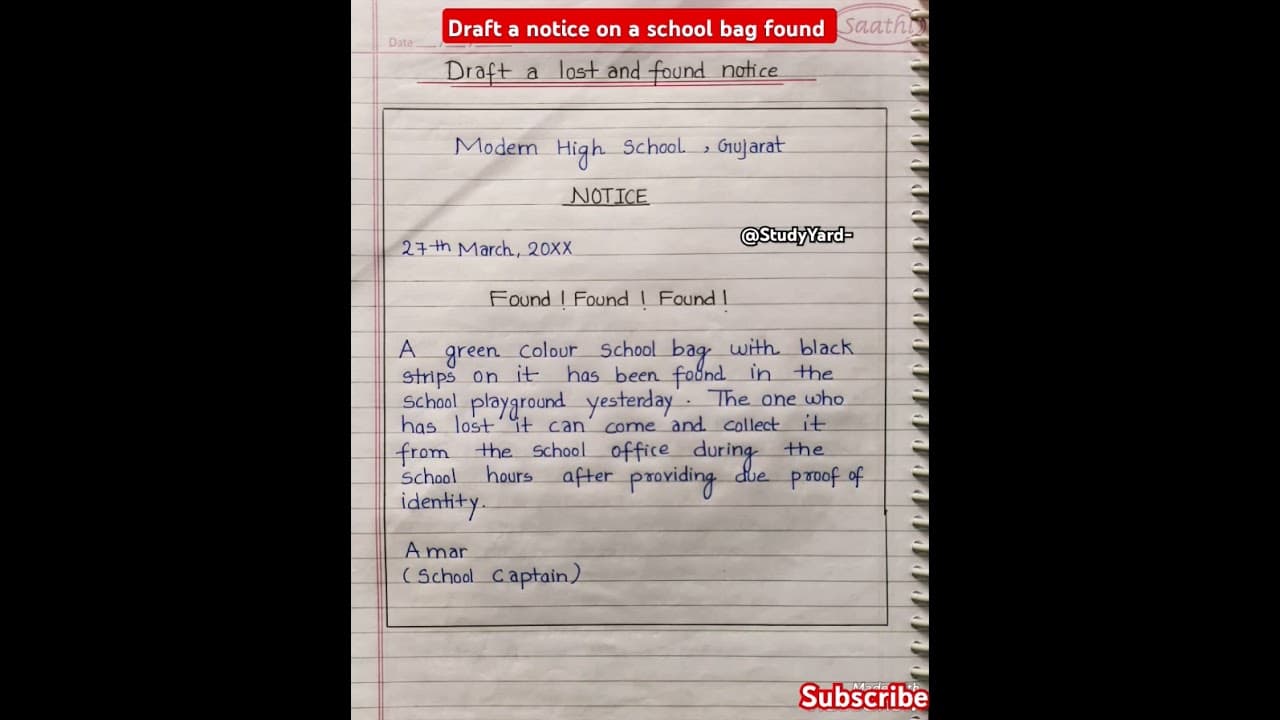 Draft a notice on a school bag found
Saathi
Date
Draft a lost and found notice
Modern High School, Gujarat
NOTICE
@StudyYard-
27th March, 20XX
Found! Found! Found!
A green colour school bag with black
strips on it has been found in the
school playground yesterday. The one who
has lost it can come and collect it
from the school office during the
school hours after providing due proof of
identity.
Amar
(School Captain)
Subscribe